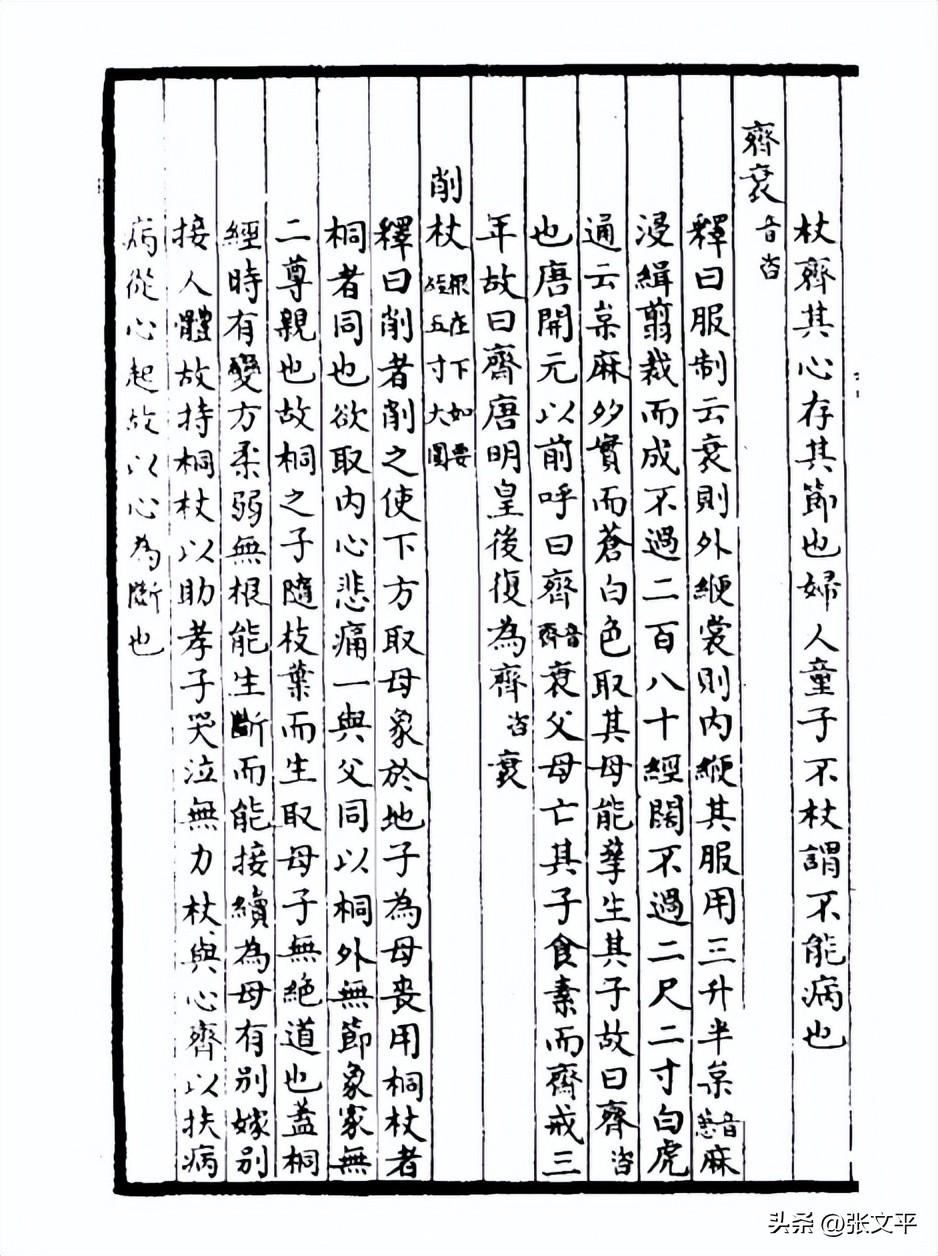 杖齊其心存其節也婦人童子不杖謂不能病也
齊衰音咨
釋曰服制云衰則外緶裳則内緶其服用三升半枲音葸麻
浸緝翦裁而成不過二百八十經闊不過二尺二寸白虎
通云枲麻多實而蒼白色取其母能孳生其子故曰齊咨
也唐開元以前呼曰齊音齊衰父母亡其子食素而齊戒三
年故曰齋唐明皇後復為齊咨衰
削杖根在下如要絰五寸大圓
釋曰削者削之使下方取母象於地子為母喪用桐杖者
桐者同也欲取内心悲痛一與父同以桐外無節象家無
二尊親也故桐之子隨枝葉而生取母子無絶道也蓋桐
經時有變方柔弱無根能生斷而能接續為母有别嫁别
接人體故持桐杖以助孝子哭泣無力杖與心齊以扶病
病從心起故以心為斷也
头条 @张文平